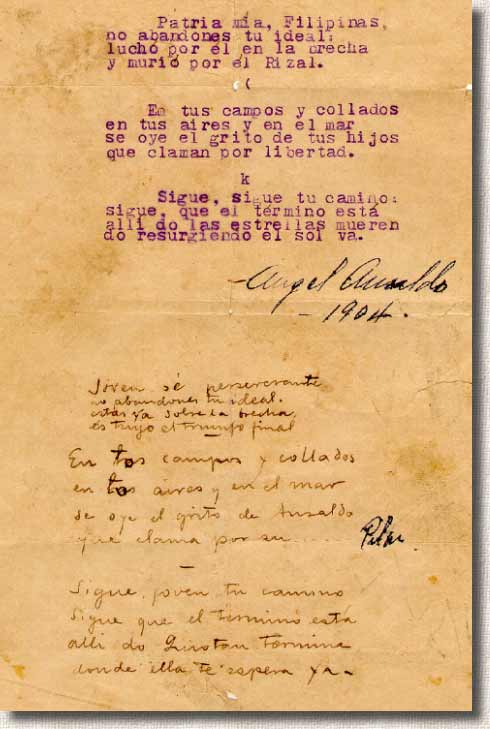 Patria mía, Filipinas,
no abandones tu ideal:
luchó por él en la brecha
y murió por el Rizal.
(
En tus campos y collados
en tus aires y en el mar
se oye el grito de tus hijos
que claman por libertad.
k
Sigue, sigue tu camino:
sigue, que el término está
alli do las estrellas mueren
do resurgiendo el sol va.
- Angel Ansaldo
- 1904.
Joven sé perseverante
no abandones tu ideal.
estás ya sobre la brecha,
es tuyo el triunfo final
—
En los campos y collados
en los aires y en el mar
se oye el grito de Ansaldo
que clama por su ...... Pilar.
—
Sigue, joven tu camino
Sigue que el término está
alli do termina
donde ella te espera ya.